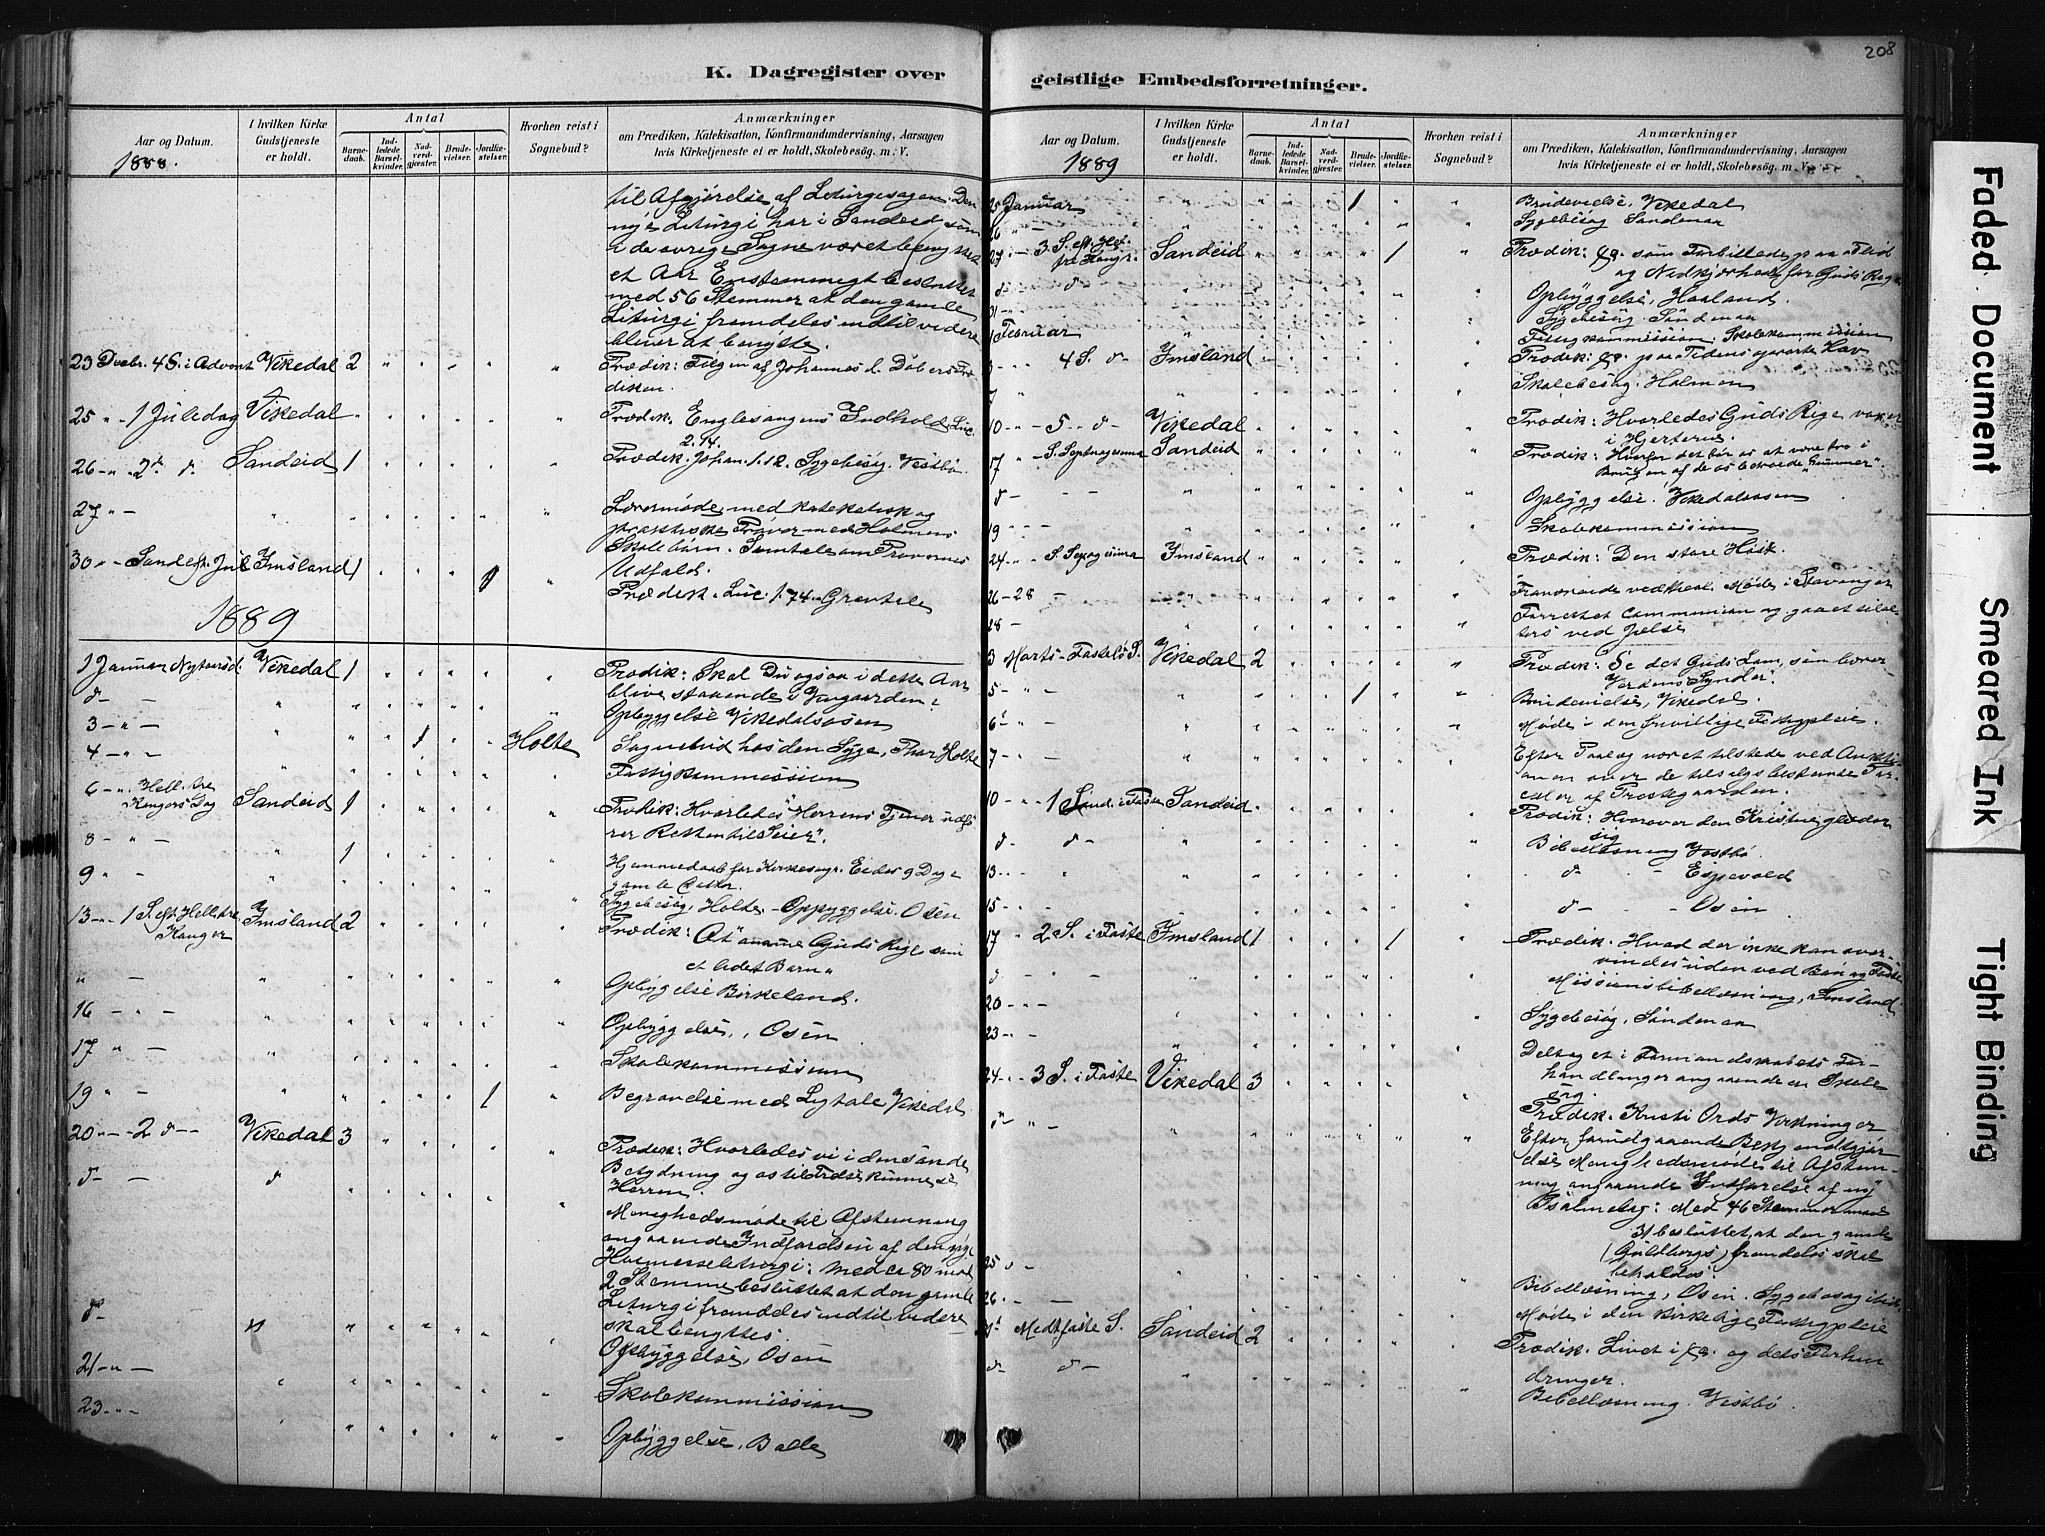 K. Dagregister over
Aar og Datum.
I hvilken Kirke Gudstjeneste er holdt.
Antal
Barne-daab.
Ind-ledede Barsel-kvinder.
Nad-verd-gjester.
Brude-vielser.
Jordfæ-stelser.
Hvorhen reist i Sognebud?
Anmærkninger
om Prædiken, Katekisation, Konfirmandundervisning, Aarsagen
hvis Kirketjeneste ei er holdt, Skolebesøg. m. V.
1888.
til Afgjørelse af Liturgisagen. Den
nye Liturgi har i Sandeid som
i de øvrige Sogne været benyttet
et Aar Enstemmigt besluttet
med 56 Stemmer at den gamle
Liturgi fremdeles indtil videre
bliver at benytte.
23 Decbr. 4 S. i Advent Vikedal 2
Prædik: Følgen af Johannes d. Døbers Præ
diken.
25 " 1 Juledag Vikedal
Prædik. Englesangens Indhold. Luc.
2.14.
26 - " 2 d. Sandeid 1
Prædik. Johan. 1.12. Sygebesøg. Vestbø.
27 " -
Lærermøde, med katekatisk og
praktiske Prøver med Holmens
Skolebørn. Samtale om Prøvernes
Udfald.
30 " - Sønd. ef. Jul Imsland 1
Prædik. Luc. 1.74 - Gravtale
1889
1 Januar Nytaarsd. Vikedal 1
Prædik: Skal Du ogsaa i dette Aar
blive staaende i Vingaarden?
d - -
Opbyggelse Vikedalsosen
3 - " - Holte
Sognebud hos den Syge, Thor Holte
4 - " -
Fattigkommission
6 - " Hell. tre
Kongers Dag Sandeid 1
Prædik: Hvorledes "Herrens Tjener udfø
rer Retten til Seier".
8 - " - 1
Hjemmedaab for Kirkesgr. Eides 9 Dage
gamle Datter.
9 " -
Sygebesøg, Holte. - Opbyggelse. Osen
13 - " - 1 S. eft. Hell. tre
Konger Imsland 2
Prædik: At "annamme Guds Rige som
et lidet Barn"
" -
Opbyggelse Birkeland.
16 - " -
Opbyggelse, Osen
17 " -
Skolekommission
19 " - 1
Begravelse med Ligtale Vikedal
20 " - 2 d - Vikedal 3
Prædik: Hvorledes vi i den sande
Betydning og os til Frelse kunne se
Herren.
d - - d
Menighedsmøde til Afstemning
angaaende Indførelsen af den nye
Høimesseliturgi: Med ca 80 mod
2 Stemme besluttet at den gamle
Liturgi fremdeles indtil videre
skal benyttes.
d -
Opbyggelse, Osen
21 - " -
Skolekommission
23 - " -
Opbyggelse. Balle
208
geistlige Embedsforretninger.
Aar og Datum.
I hvilken Kirke Gudstjeneste er holdt.
Antal
Barne-daab.
Ind-ledede Barsel-kvinder.
Nad-verd-gjester.
Brude-vielser.
Jordfæ-stelser.
Hvorhen reist i Sognebud?
Anmærkninger
om Prædiken, Katekisation, Konfirmandundervisning, Aarsagen
hvis Kirketjeneste ei er holdt, Skolebesøg. m. V.
1889
25 Januar 1
Brudevielse, Vikedal
26 " -
Sygebesøg Søndenaa
27 " - 3. S. eft. Hel.
tre Kongr. Sandeid 1
som Forbillede paa Flid
og Nidkjærhed for Guds Rige
d - d
Opbyggelse, Haaland.
31 " -
Sygebesøg. Søndenaa
1 Februar
Fattigkommission. Skolekommission
3 - 4 S. d - Imsland
paa Tidens oprørte Hav
7 "
Skolebesøg Holmen
10 " - 5 " d - Vikedal
Prædik: Hvorledes Guds Rige voxer
i Hjerterne.
17 - S. Septuagesima Sandeid
Prædik: Hvorfor det bør os at være tro i
Brugen af de os betroede "Summer".
d - - -
Opbyggelse. Vikedalsosen
19 " - -
Skolekommission
24 " - S. Sexagesima Imsland
Prædik: Den store Høst.
26 - 28 -
Fraværende ved theol. Møde i Stavanger
28 -
Forrettet Communion og gaaet til Al-
ters ved Jelse
3 Marts - Fastel. S. Vikedal 2
Prædik: Se det Guds Lam, som bærer
Verdens Synder".
5 - " - 1
Brudevielse, Vikedal
6 " -
Møde i den frivillige Fattigpleie.
7 " -
Efter Paalæg været tilstede ved Auktio-
nen over de til Salgs bestemte Par-
celler af Præstegaarden.
10 " - 1 Sønd. i Faste Sandeid
Prædik: Hvorover den Kristne glæder
sig
d d -
Bibellæsning Vestbø
13 - " "
d - - Espevold
15 " -
d - - - Osen
17 " 2 S. i Faste Imsland 1 1
Prædik. Hvad der ikke kan over-
vindes uden ved Bøn og Faste
d - " -
Missionsbibellæsning, Imsland
20 - " -
Sygebesøg, Søndenaa
23 - " -
Deltaget i Formandskabets For-
handlinger angaaende en Skole
sag.
24 - " - 3 S. i Faste Vikedal 3
Prædik. Kristi Ords Virkninger
" - " -
Efter forudgaaende Bekjendtgjør
else Menighedsmøde til Afstem-
ning angaaende Indførelse af ny
Psalmebog: Med 46 Stemmer mod
31 besluttet, at den gamle
(Guldbergs) fremdeles skal
beholdes.
25 d -
Bibellæsning, Osen. Sygebesøg ibid.
26 - - -
Møde i den kirkelige Fattigpleie
31 Midtfaste S. Sandeid 2
Prædik. Livet i og dets Forhin
dringer.
d - d -
Bibellæsning. Vestbø.
Faded Document
Smeared Ink
Tight Binding